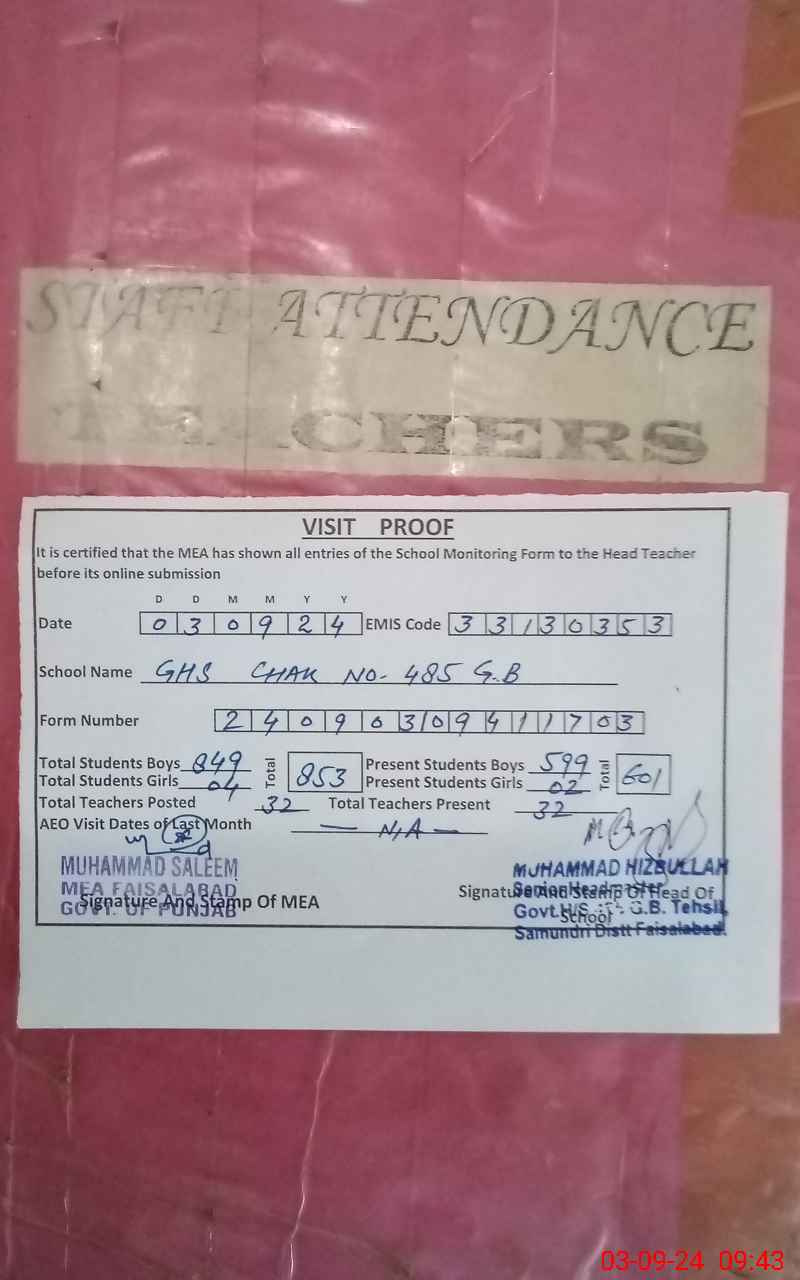 STAFF ATTENDANCE
TEACHERS
VISIT PROOF
It is certified that the MEA has shown all entries of the School Monitoring Form to the Head Teacher
before its online submission
D D M M Y Y
Date 0 3 0 9 2 4 EMIS Code 3 3 1 3 0 3 5 3
School Name GHS CHAK NO- 485 G.B
Form Number 2 4 0 9 0 3 0 9 4 1 1 7 0 3
Total Students Boys 849 Total 853 Present Students Boys 599 Total 601
Total Students Girls 04 Present Students Girls 02
Total Teachers Posted 32 Total Teachers Present 32
AEO Visit Dates of Last Month — N/A —
MUHAMMAD SALEEM
MEA FAISALABAD
GOVT. OF PUNJAB
Signature And Stamp Of MEA
MUHAMMAD HIZBULLAH
Senior Headmaster
Signature And Stamp Of Head Of
School
Govt.H/S G.B. Tehsil
Samundri Distt Faisalabad.
03-09-24 09:43